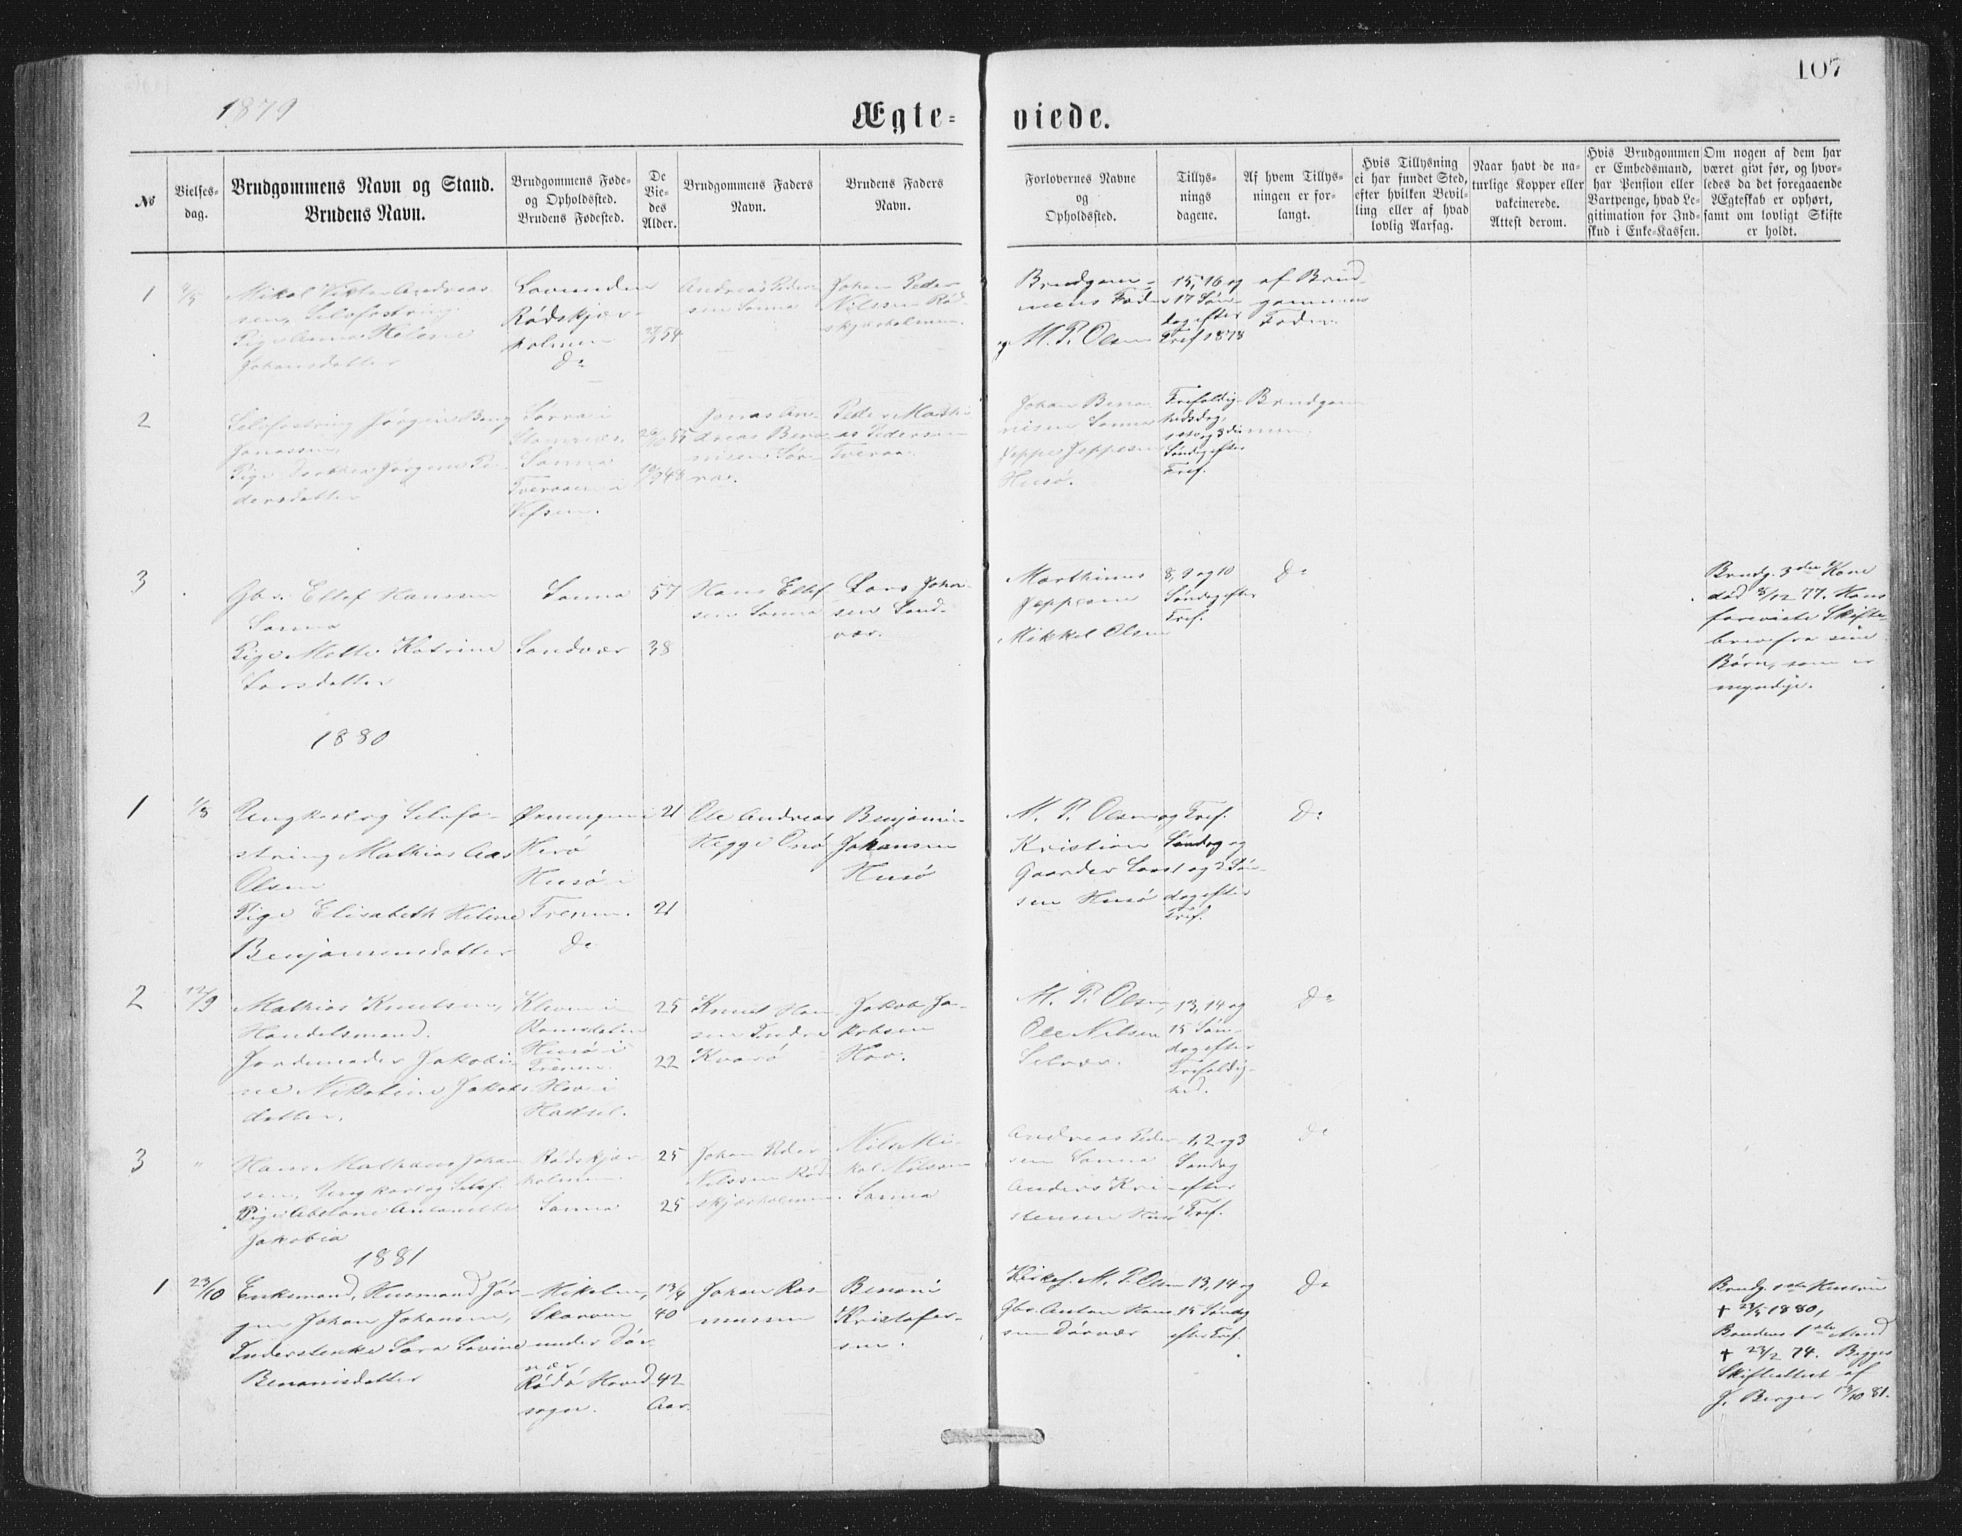 107
1879
Ægte-
viede.
No
Vielses-
dag.
Brudgommens Navn og Stand.
Brudens Navn.
Brudgommens Føde-
og Opholdssted.
Brudens Fødested.
De
Vie-
des
Alder.
Brudgommens Faders
Navn.
Brudens Faders
Navn.
Forlovernes Navne
og
Opholdssted.
Tillys-
nings
dagene.
Af hvem Tillys-
ningen er for-
langt.
Hvis Tillysning
ei har fundet Sted,
efter hvilken Bevil-
ling eller af hvad
lovlig Aarsag.
Naar havt de na-
turlige Kopper eller
vakcinerede.
Attest derom.
Hvis Brudgommen
er Embedsmand,
har Pension eller
Vartpenge, hvad Le-
gitimation for Ind-
skud i Enke-Kassen.
Om nogen af dem har
været givt før, og hvor-
ledes da det foregaaende
Ægteskab er ophørt,
samt om lovligt Skifte
er holdt.
1
Mikal Viktor Andreas-
sen, Selvfostring
Pige Anna Helene
Johansdatter
Lovunden
Rødskjær-
holmen
Do
54
Andreas Peder-
sen Sanna
Johan Peder
Nilssen Rød-
skjærholmen.
Brudgom-
mens Fader
og M. P. Olsen
15, 16 og
17 Søn-
dag efter
Tref 1878
af Brud-
gommens
Fader.
2
Selvfostring Jørgen Benj
Jonassen,
Pige
Jørgine Pe-
dersdatter
Sanna
Tveraaen i
Vefsen.
Jonas An-
dreas Beno-
nisen
Peder Math-
ias Pedersen
Tveraa.
Johan Beno-
nisen Sanna
Jeppe Jeppesen
Husö.
Trefoldig-
hedsdag,
Søndag efter
Tref.
Brudgom-
men.
3
Gbr. Ellef Hansen
Sanna
Pige Malle Katrine
Larsdatter
Sanna
Sandvær
57
38
Hans Ellef-
sen Sanna
Lars Johan-
sen Sand-
vær.
Marthinus
Jeppesen
Mikkel Olsen
8, 9 og 10
Søndag efter
Tref.
Do
Brudg. 3die Kone
død 3/12 77. Hans
foreviste Skifte-
brev fra sine
Børn, som er
myndige.
1880
1
1/3
Ungkarl og Selvfo-
string Mathias Aas
Olsen
Pige Elisabeth Helene
Benjaminsdatter
Herö
Husö i
Trenen.
Do
21
21
Ole Andreas
Hegge
Benjamin
Johansen
Husö
M. P. Olsen og
Kristian
Gaarder Laust-
sen Husö
Tref.
Søndag og
og 2 Søn-
dag efter
Tref.
Do
2
12/9
Mathias Knutsen,
Handelsmand.
Jordmoder Jakobi-
ne Nikoline Jakobs-
datter.
Kleven i
Romsdalen
Husö i
Trenen.
Hov i
Hadsel.
25
22
Knut Han-
sen Indre
Kvarö
Jakob Ja-
kobsen
Hov.
M. P. Olsen,
Ole Nilsen
Selvær.
13, 14 og
15 Søn-
dag efter
Trefoldig-
hed.
Do
3
"
Hans Mathias Johan-
sen, Ungkarl og Selvf.
Pige Abelone Antonette
Jakobia
Rødskjær-
holmen.
Sanna
25
25
Johan Peder
Nilssen Rød-
skjærholmen.
Nils Mi-
kal Nilssen
Sanna
Andreas Peder-
sen Sanna
Anders Kri-
stensen Husö
1, 2 og 3
Søndag
efter
Tref.
Do
1881
1
23/10
Enkemand, Husmand Jör-
gen Johan Johansen,
Inderstenke Sara Lovine
Benonisdatter
Mikalen,
Skarven
under Dör-
vær
Rødö Hoved-
sogn.
40
42
Aar.
Johan Ras-
mussen
Benoni
Kristofer-
sen.
Kirkes. M. P. Olsen
Gbr. Anton Hans-
sen Dörvær
13, 14 og
15 Søndag
efter Tref.
Do
Brudg. 1ste Hustru
† 23/5 1880,
Brudens 1ste Mand
† 23/2 74. Begges
Skifteattest af
J. Berger 19/10 81.